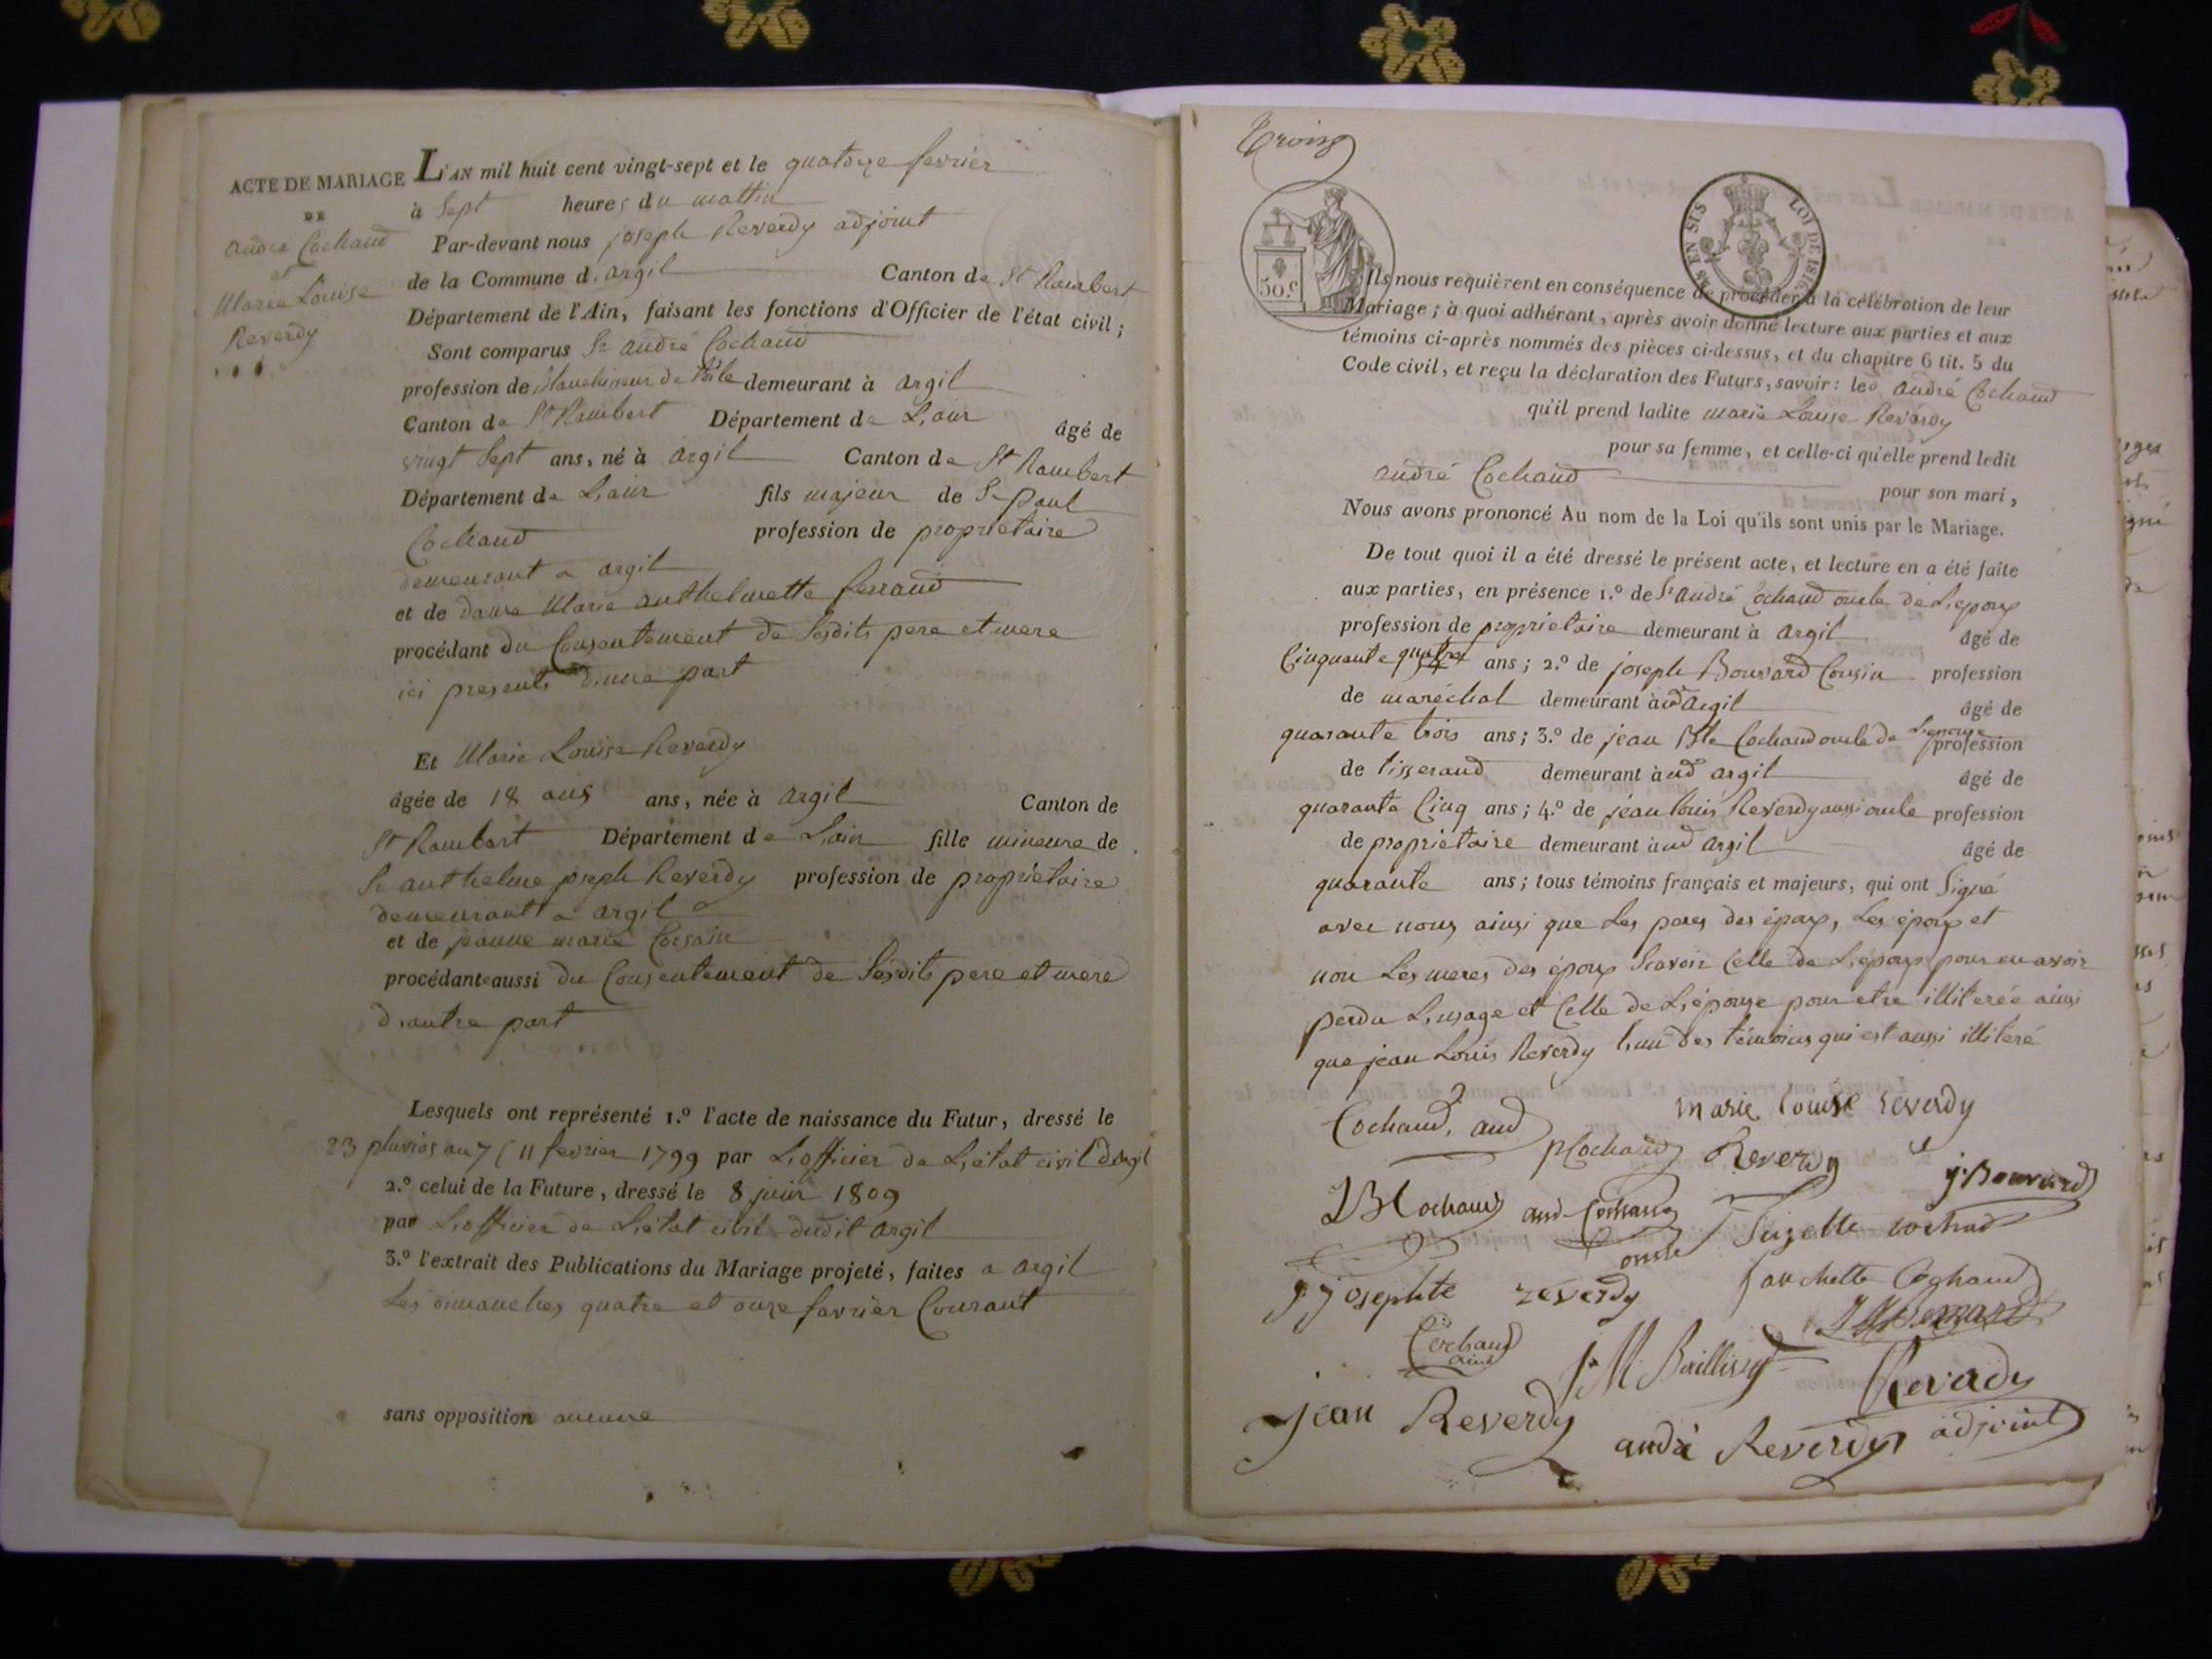 ACTE DE MARIAGE
DE
andré Cochaud
et
Marie Louise
Reverdy
L'AN mil huit cent vingt-sept et le quatorze fevrier
à Sept heures du mattin
Par-devant nous joseph Reverdy adjoint
de la Commune d, argil Canton de St Rambert
Département de l'Ain, faisant les fonctions d'Officier de l'état civil ;
Sont comparus Sr andré Cochaud
profession de Blanchisseur de demeurant à argil
Canton de St Rambert Département de L,ain âgé de
vingt Sept ans, né à argil Canton de St Rambert
Département de L,ain fils majeur de Sr paul
Cochaud profession de propriétaire
demeurant a argil
et de dame Marie anthelmette ferrand
procédant du Consentement de Sesdits pere et mere
ici presents d,une part
Et Marie Louise Reverdy
âgée de 18 ans ans, née à argil Canton de
St Rambert Département de L,ain fille mineure de
Sr anthelme joseph Reverdy profession de propriétaire
demeurant a argil
et de jeanne marie
procédante aussi du Consentement de Sesdits pere et mere
d,autre part
Lesquels ont représenté 1.º l'acte de naissance du Futur, dressé le
23 pluvios an 7 ( 11 fevrier 1799 par L,officier de L,état civil d'Argil
2.º celui de la Future, dressé le 8 juin 1809
par L,officier de L,état civil dudit argil
3.º l'extrait des Publications du Mariage projeté, faites a argil
Les dimanches quatre et onze fevrier Courant
sans opposition aucune
Trois
50.c
LOI DE 1816
Ils nous requièrent en conséquence de procéder à la célébration de leur
Mariage ; à quoi adhérant, après avoir donné lecture aux parties et aux
témoins ci-après nommés des pièces ci-dessus, et du chapitre 6 tit. 5 du
Code civil, et reçu la déclaration des Futurs, savoir : led andré Cochaud
qu'il prend ladite marie Louise Reverdy
pour sa femme, et celle-ci qu'elle prend ledit
andré Cochaud pour son mari,
Nous avons prononcé Au nom de la Loi qu'ils sont unis par le Mariage.
De tout quoi il a été dressé le présent acte, et lecture en a été faite
aux parties, en présence 1.º de Sr andré Cochaud oncle de L,epoux
profession de proprietaire demeurant à argil âgé de
Cinquante quatre ans ; 2.º de joseph Bouvard Cousin profession
de maréchal demeurant à ud argil âgé de
quarante trois ans ; 3.º de jean Bte Cochaud oncle de L,epouse profession
de tisserand demeurant à ud argil âgé de
quarante Cinq ans ; 4.º de jean louis Reverdy aussi oncle profession
de proprietaire demeurant à ud argil âgé de
quarante ans ; tous témoins français et majeurs, qui ont Signé
avec nous ainsi que Les peres des époux, Les époux et
non Les meres des époux Scavoir Celle de L,époux pour en avoir
perdu L,usage et Celle de L,épouse pour etre illiterée ainsi
que jean Louis Reverdy L,un des témoins qui est aussi illiteré
Cochaud, and marie louise reverdy
PCochaud Reverdy
JBCochaud and Cochaud oncle Suzette cochaud j. Bouvard
josephte reverdy fanchette Cochaud
Cochaud ainé
jean Reverdy andré Reverdy Reverdy adjoint